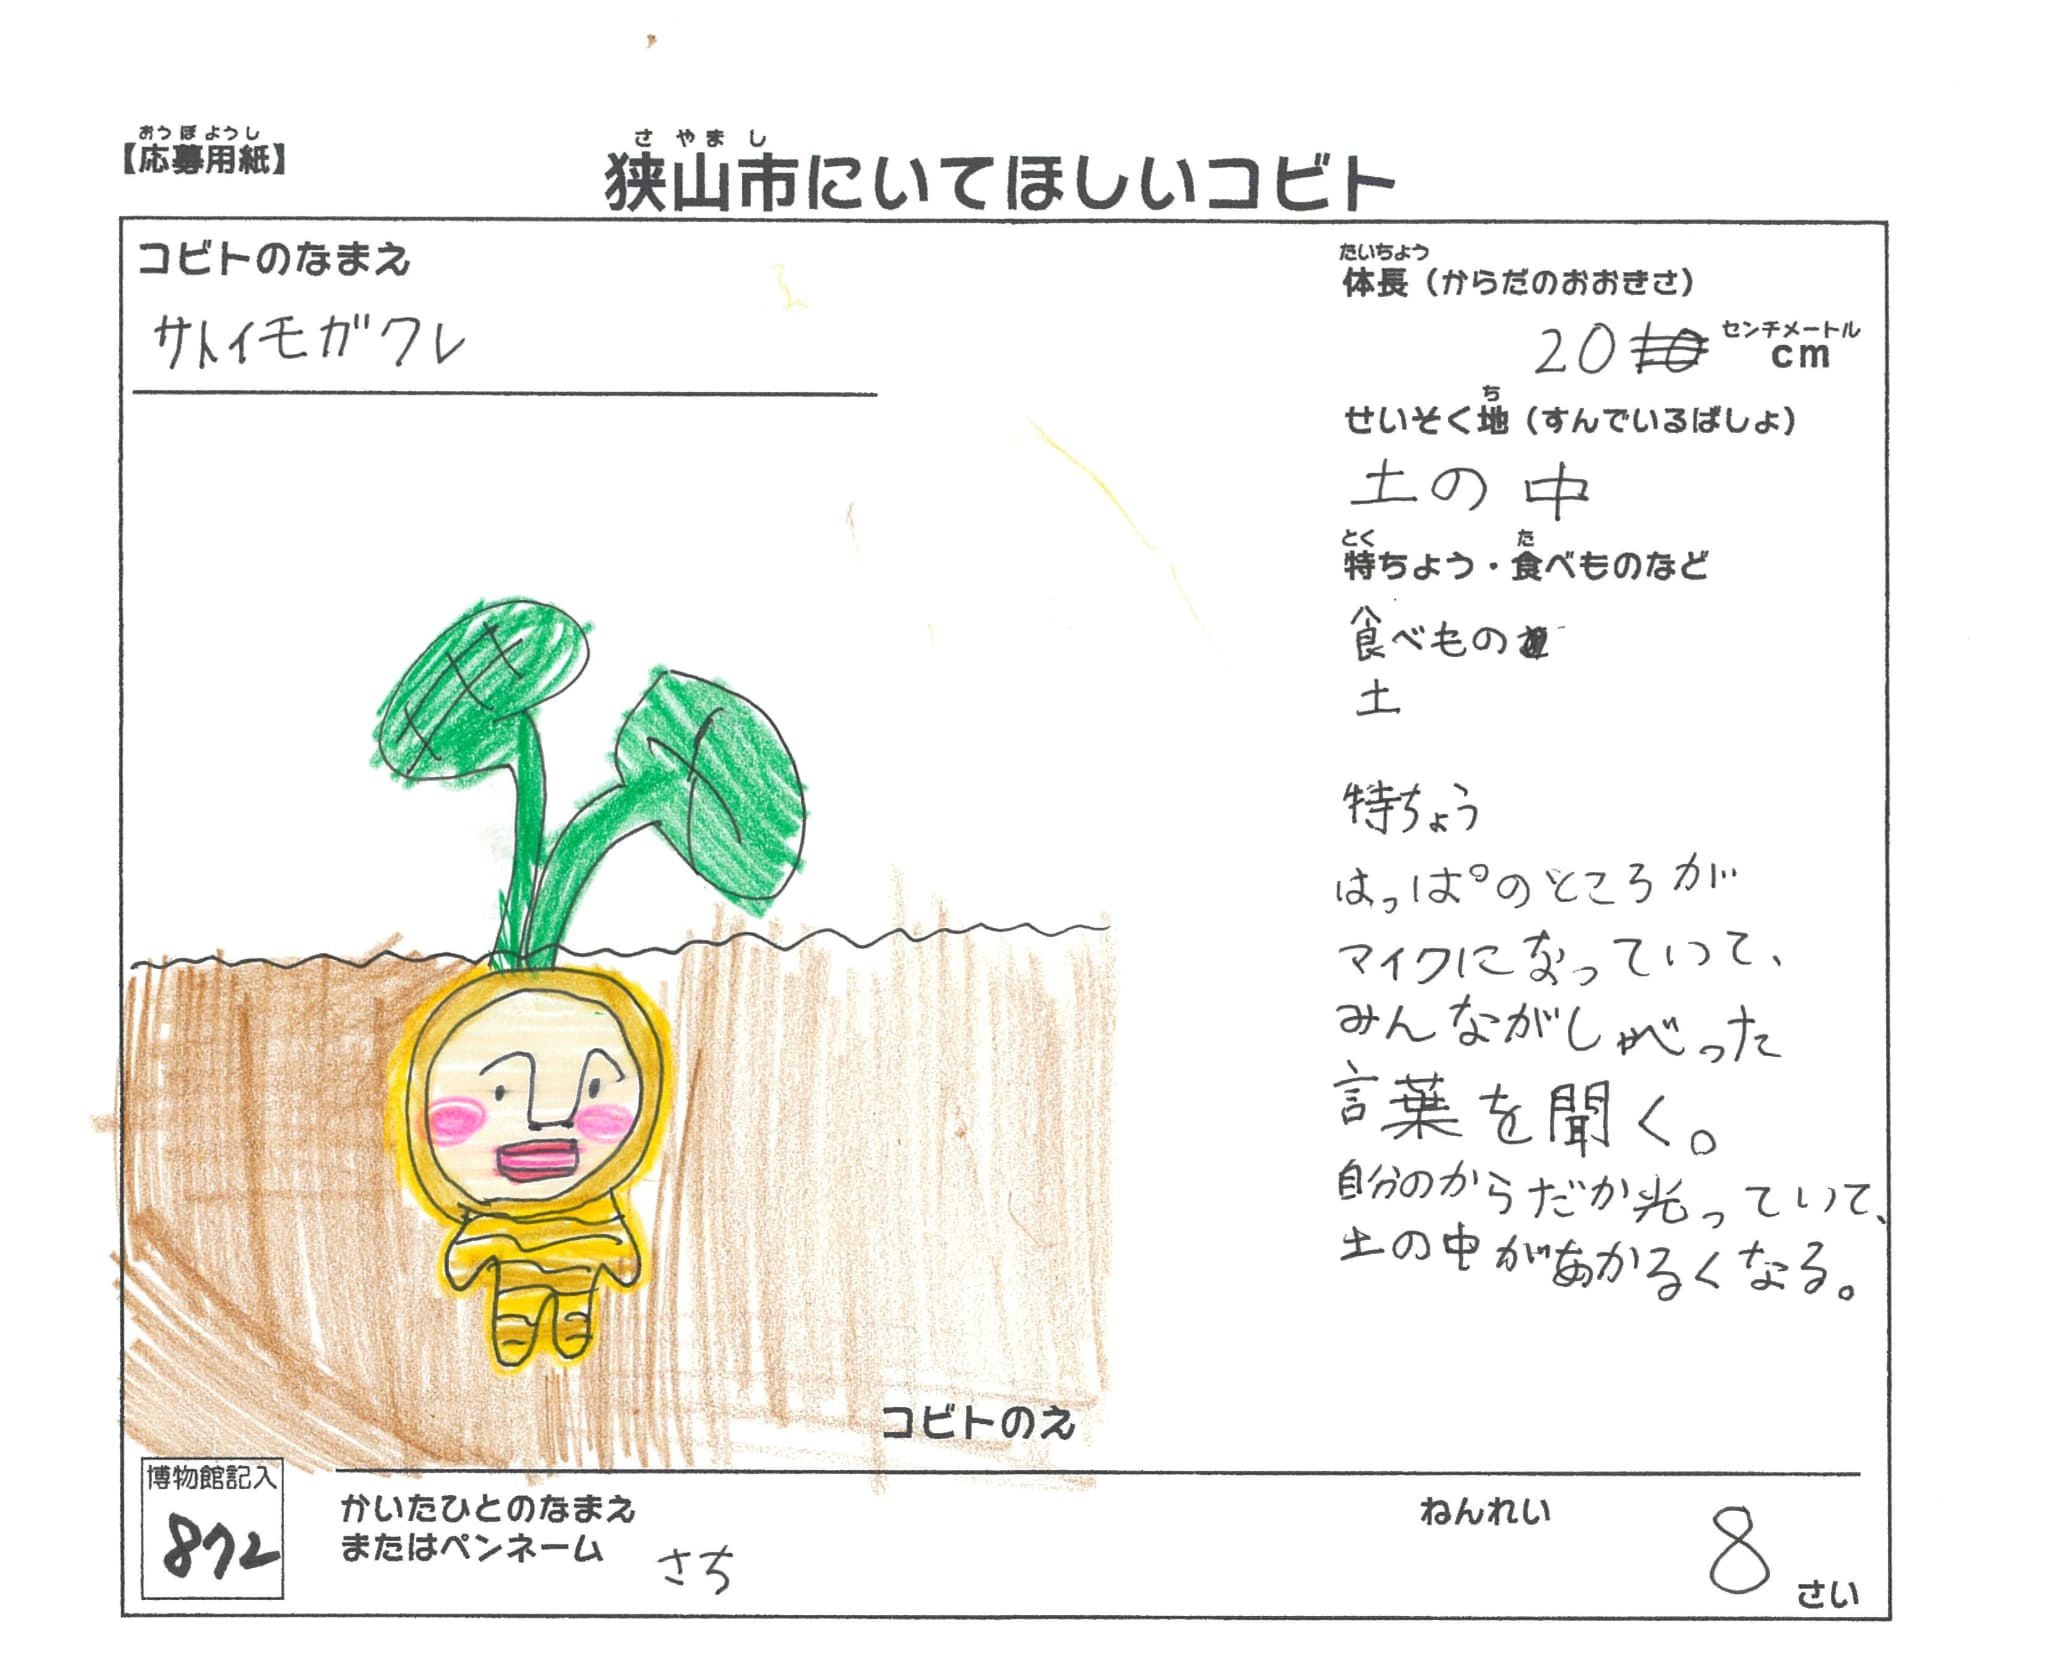 おうぼようし
【応募用紙】
さやまし
狭山市にいてほしいコビト
コビトのなまえ
サトイモガクレ
たいちょう
体長（からだのおおきさ）
20 センチメートル
cm
ち
せいそく地（すんでいるばしょ）
土の中
とく た
特ちょう・食べものなど
食べもの
土
特ちょう
はっぱのところが
マイクになっていて、
みんながしゃべった
言葉を聞く。
自分のからだか光っていて、
土の中があかるくなる。
コビトのえ
博物館記入
872
かいたひとのなまえ
またはペンネーム
さち
ねんれい
8 さい